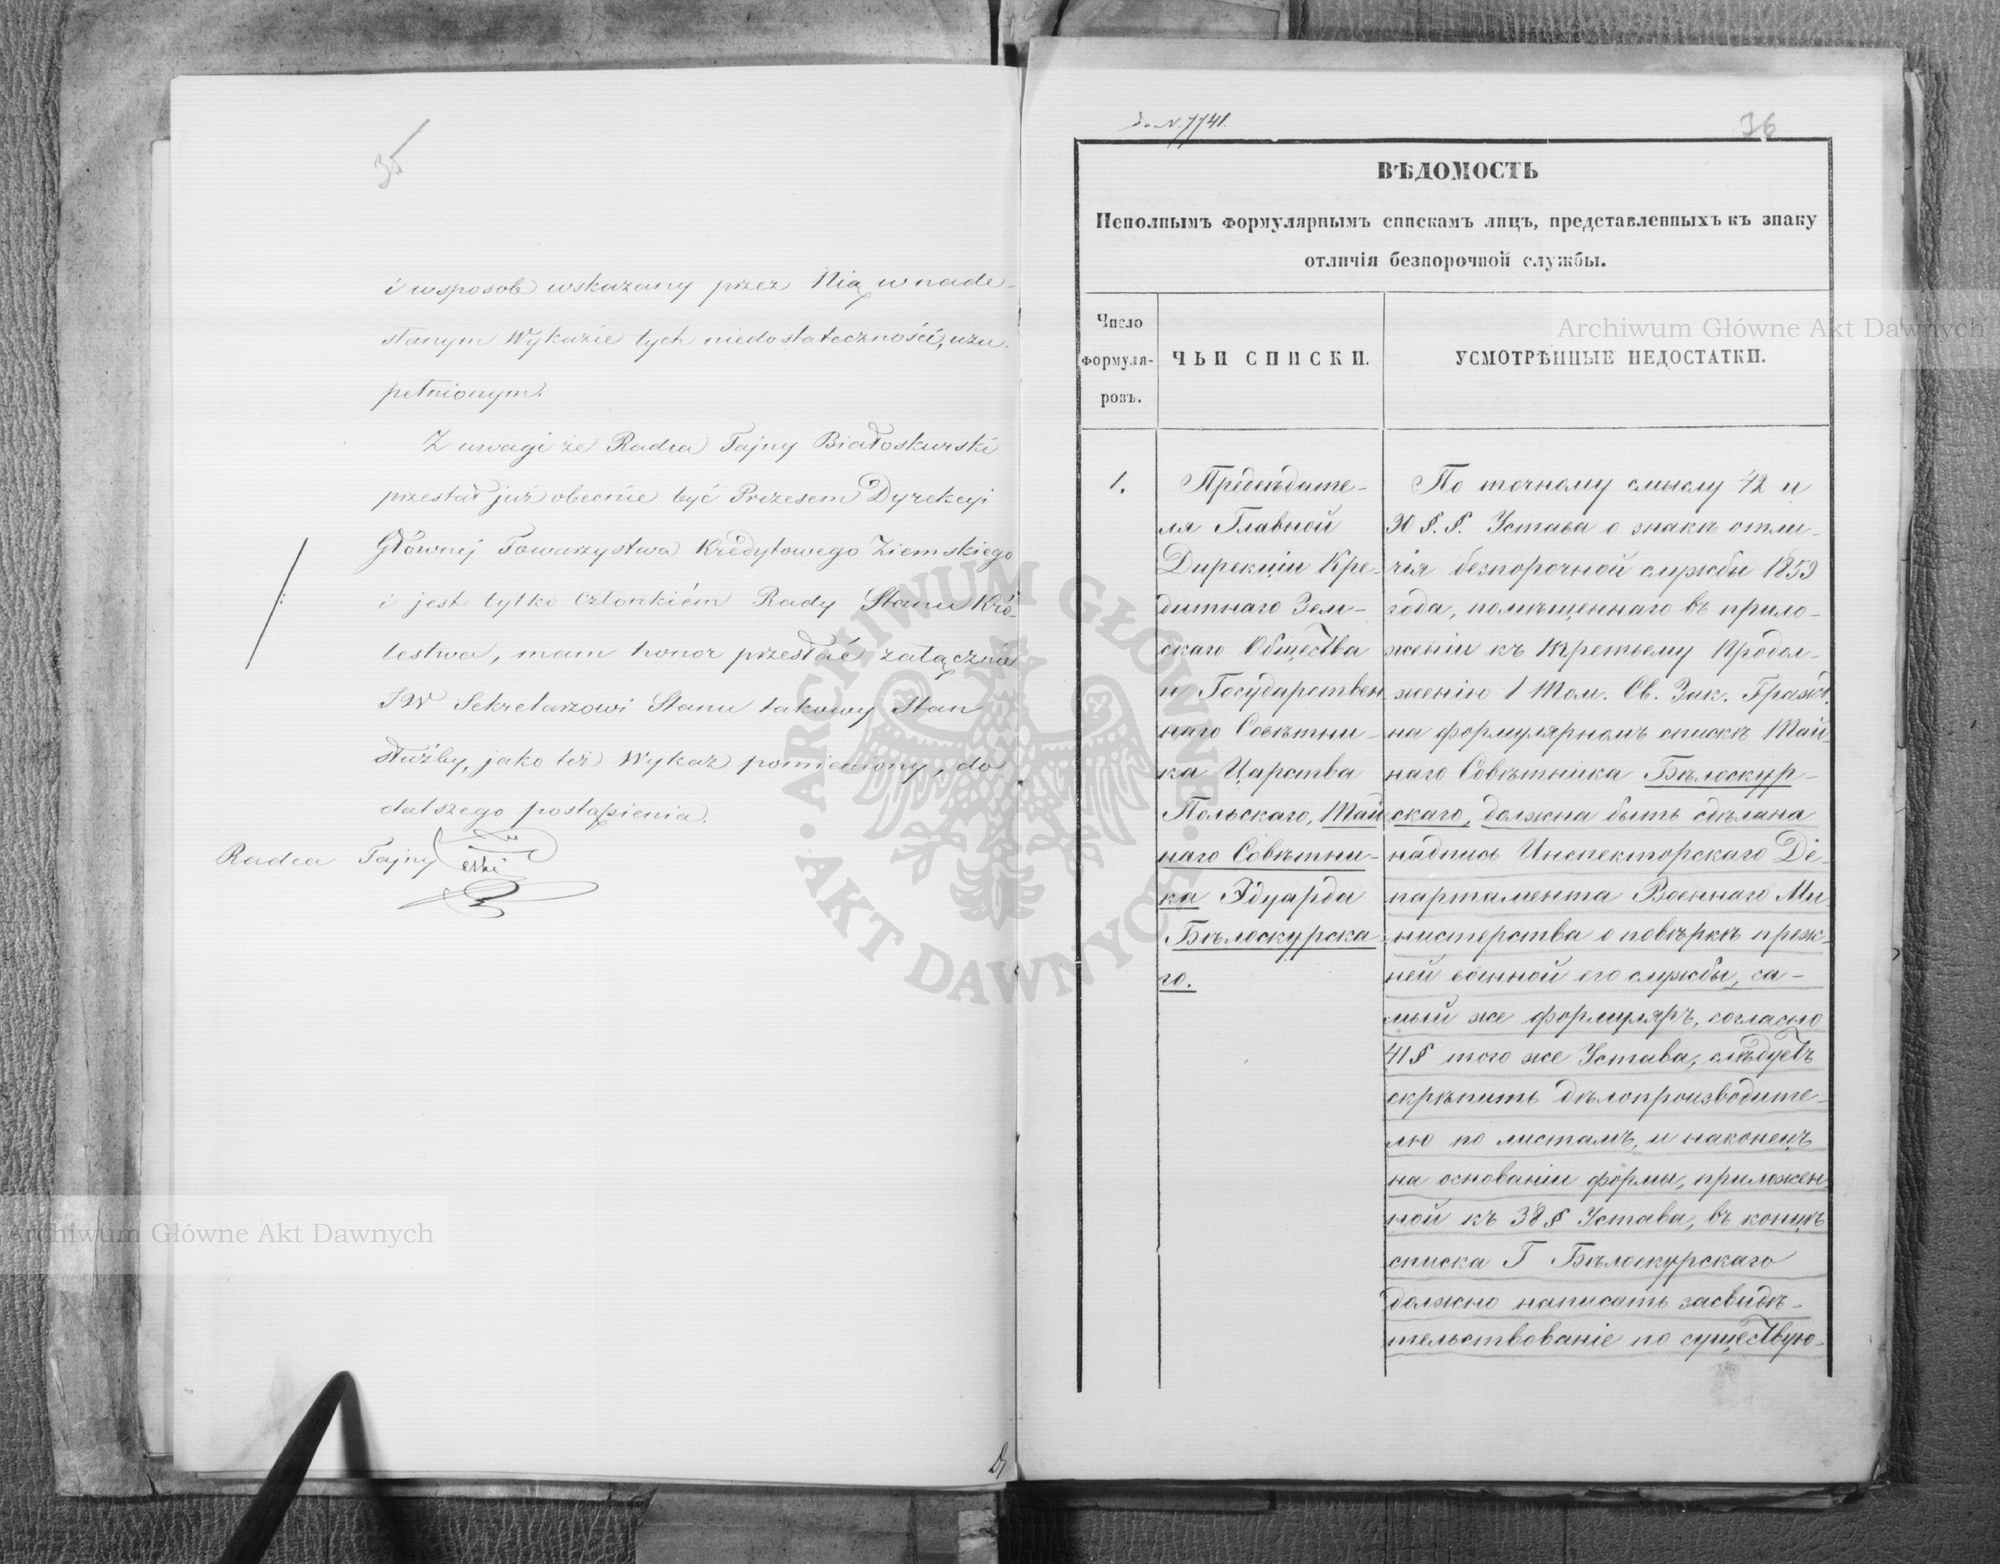 35
i w sposób wskazany przez Nią w nade-
słanym Wykazie tych niedostateczności, uzu-
pełnionym.
Z uwagi że Radca Tajny Białoskurski
przestał już obecnie być Prezesem Dyrekcyi
Głównej Towarzystwa Kredytowego Ziemskiego
i jest tylko Członkiem Rady Stanu Kró-
lestwa, mam honor przesłać załącznie
JW Sekretarzowi Stanu takowy Stan
służby, jako też Wykaz pomieniony, do
dalszego postąpienia.
Radca Tajny
do N. 7741.
36
ВѢДОМОСТЬ
Неполнымъ формулярнымъ спискамъ лицъ, представленныхъ къ знаку
отличія безпорочной службы.
Число
формуля-
ровъ.
ЧЬИ СПИСКИ.
УСМОТРѢННЫЕ НЕДОСТАТКИ.
1.
Предсѣдате-
ля Главной
Дирекціи Кре-
дитнаго Зем-
скаго Общества
и Государствен-
наго Совѣтни-
ка Царства
Польскаго, Тай-
наго Совѣтни-
ка Эдуарда
Бѣлоскурска-
го.
По точному смыслу 42 и
90 §.§. Устава о знакѣ отли-
чія безпорочной службы 1859
года, помѣщеннаго въ прило-
женіи къ третьему Продол-
женію 1 Том. Св. Зак. Гражд.
на формулярномъ спискѣ Тай-
наго Совѣтника Бѣлоскур-
скаго, должна быть сдѣлана
надпись Инспекторскаго Де-
партамента Военнаго Ми-
нистерства о повѣркѣ преж-
ней военной его службы, са-
мый же формуляръ, согласно
41 § того же Устава, слѣдуетъ
скрѣпить дѣлопроизводите-
лю по листамъ, и наконецъ
на основаніи формы, приложен-
ной къ 38 § Устава, въ концѣ
списка Г Бѣлоскурскаго
должно написать засвидѣ-
тельствованіе по существую-
Archiwum Główne Akt Dawnych
Archiwum Główne Akt Dawnych
ARCHIWUM GŁÓWNE AKT DAWNYCH